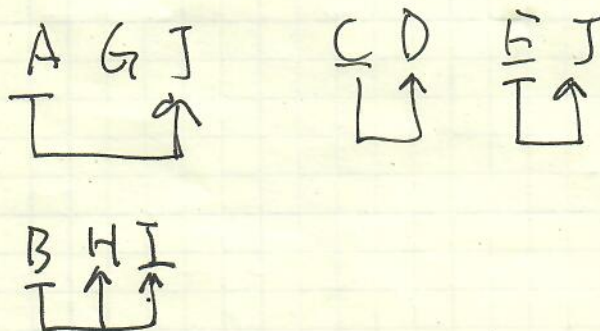 A G J C D E J
B H I